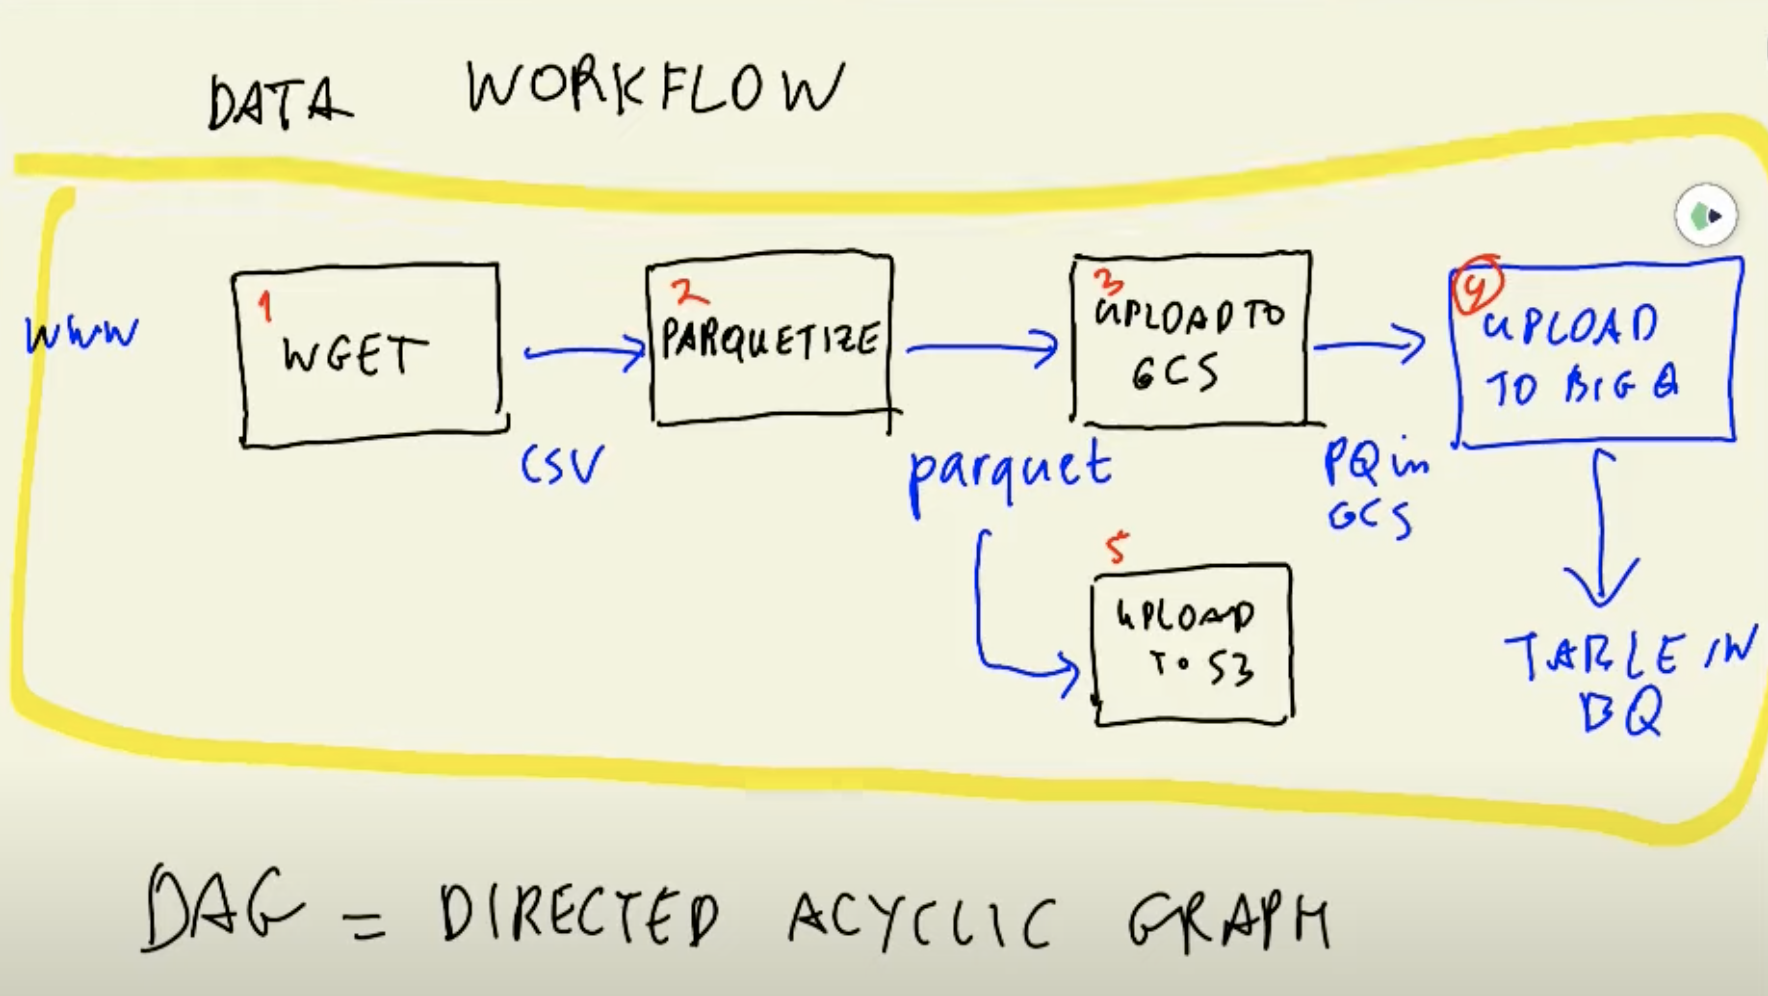 DATA WORKFLOW
WWW
1
WGET
CSV
2
PARQUETIZE
parquet
3
UPLOAD TO
GCS
PQ in
GCS
4
UPLOAD
TO BIG Q
TABLE IN
BQ
5
UPLOAD
TO S3
DAG = DIRECTED ACYCLIC GRAPH